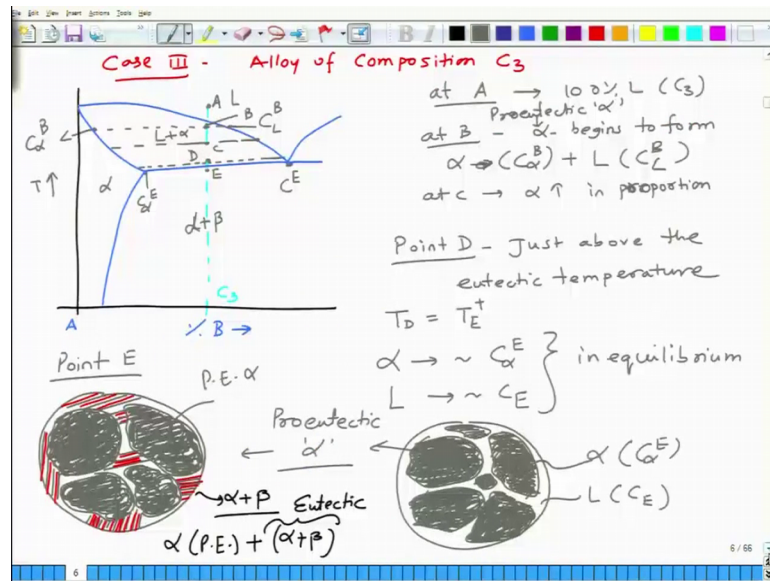 File Edit View Insert Actions Tools Help
Case III - Alloy of Composition C3
A L
B
C_α^B
C_L^B
L+α
C
D
E
T↑
α
C_α^E
C^E
α+β
C3
A
% B →
at A → 100% L (C3)
Proeutectic 'α'
at B - α - begins to form
α → (C_α^B) + L (C_L^B)
at c → α ↑ in proportion
Point D - Just above the
eutectic temperature
T_D = T_E^+
α → ~ C_α^E
L → ~ C_E
} in equilibrium
Point E
P.E. α
Proeutectic
← 'α' ←
α (C_α^E)
L (C_E)
→ α+β Eutectic
α (P.E.) + (α+β)
6 / 66
6